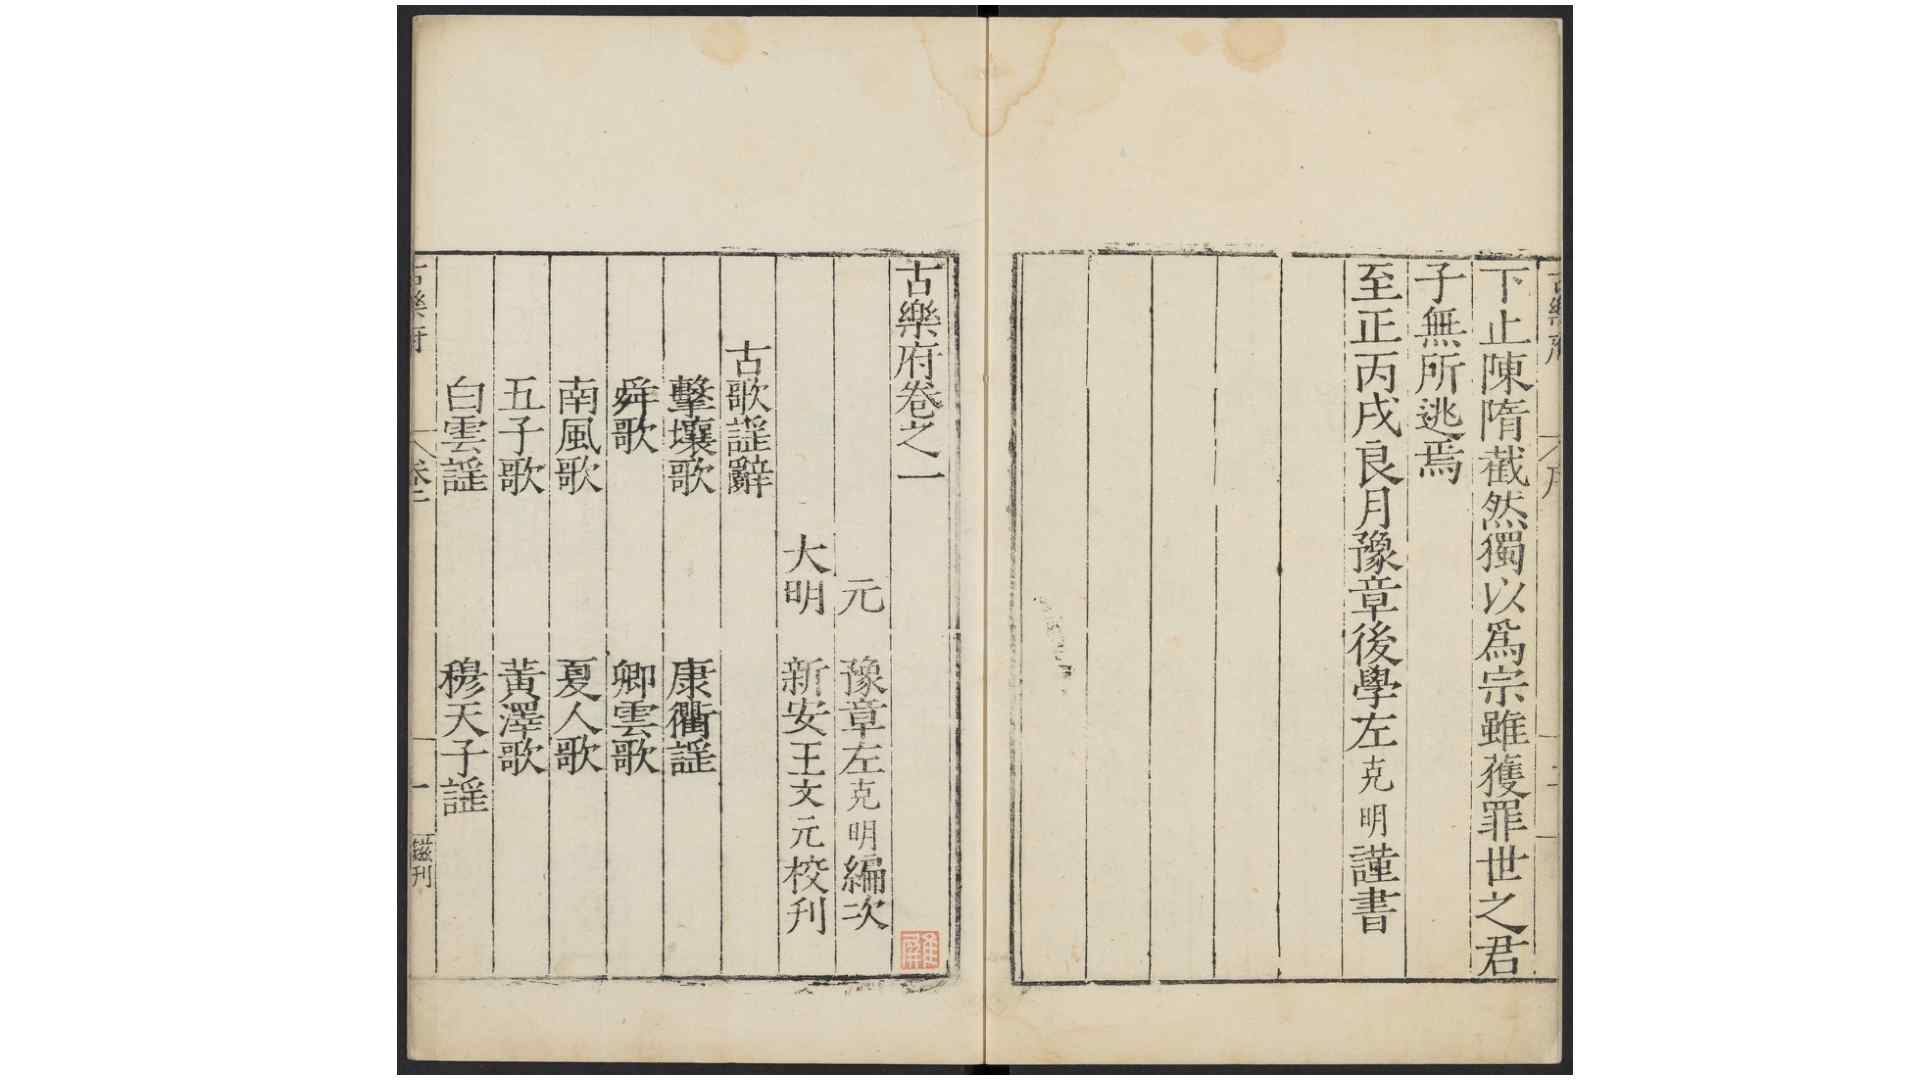 下止陳隋截然獨以爲宗雖獲罪世之君
子無所逃焉
至正丙戌良月豫章後學左克明謹書
古樂府卷之一
元 豫章左克明編次
大明 新安王文元校刋
古歌謡辭
擊壤歌 康衢謡
舜歌 卿雲歌
南風歌 夏人歌
五子歌 黃澤歌
白雲謡 穆天子謡